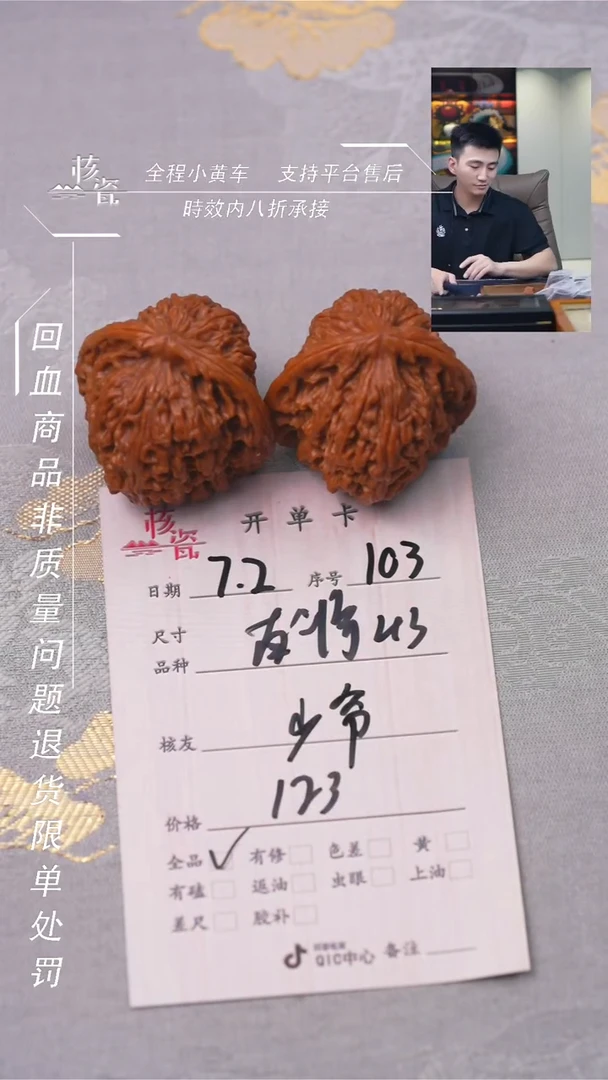 核瓷
全程小黄车 支持平台售后
時效内八折承接
回血商品非质量问题退货限单处罚
核瓷 开单卡
日期 7.2 序号 103
尺寸
品种 43
核友 少爷
价格 123
全品 有修 色差 黄
有磕 返油 虫眼 上油
差尺 胶补
QIC中心 备注